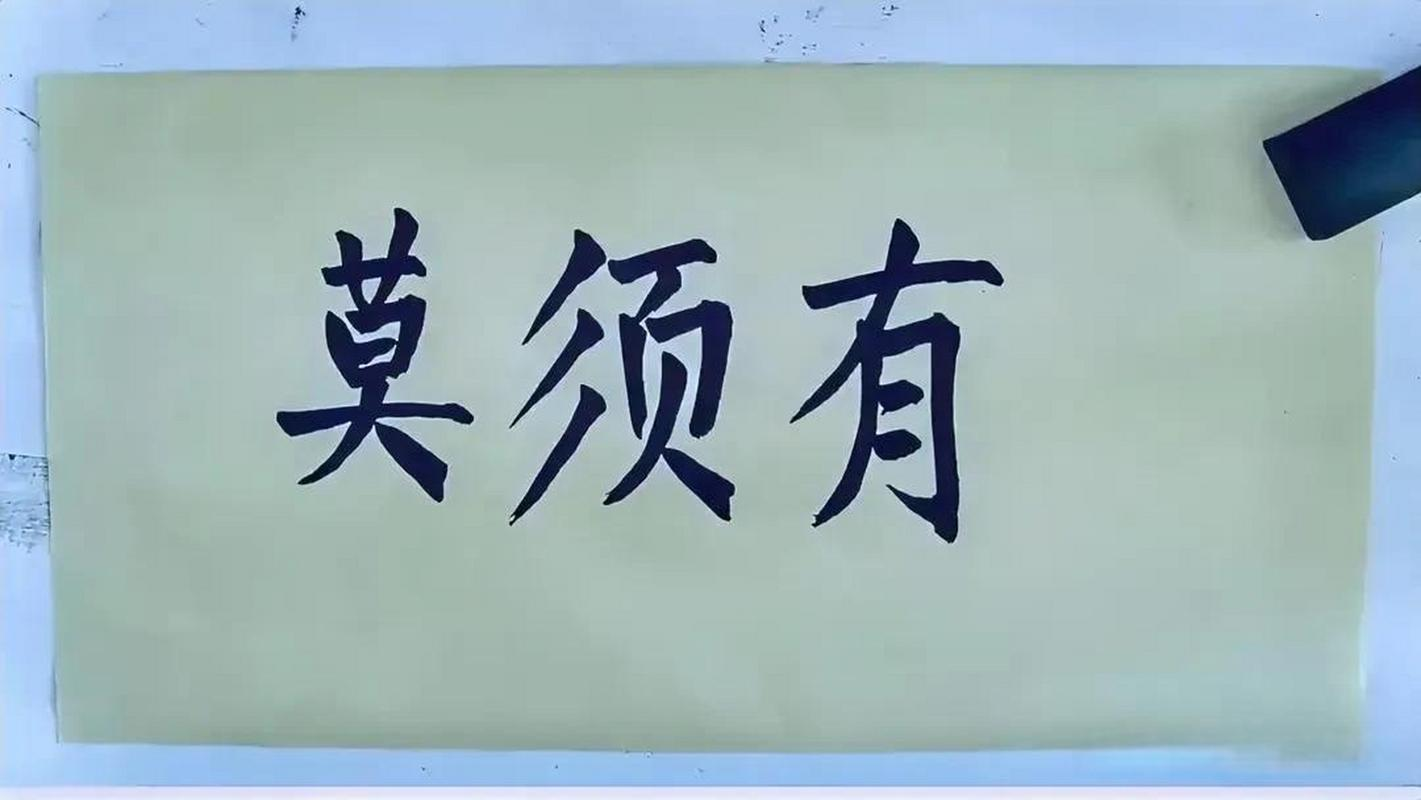 莫须有